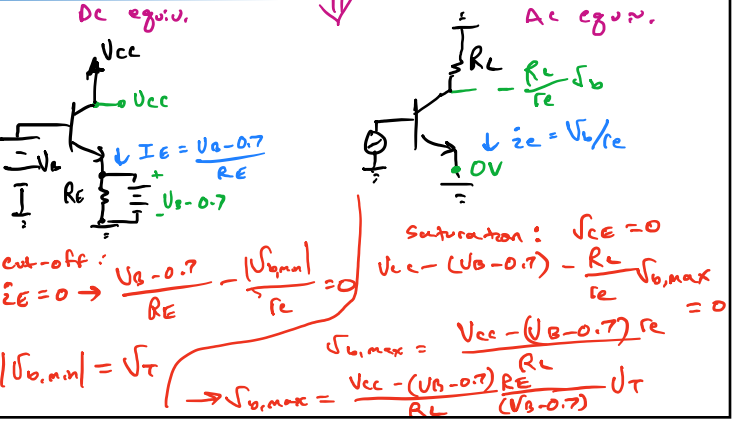 DC equiv.
VCC
VCC
VB
IE = (VB-0.7)/RE
RE
+
-
VB-0.7
cut-off:
iE = 0 → (VB-0.7)/RE - |Vb,min|/re = 0
|Vb,min| = VT
AC equiv.
RL
- (RL/re) Vb
ie = Vb/re
0V
Saturation: VCE = 0
VCC - (VB-0.7) - (RL/re) Vb,max = 0
Vb,max = (VCC - (VB-0.7))/RL re
→ Vb,max = (VCC - (VB-0.7))/RL RE/(VB-0.7) VT